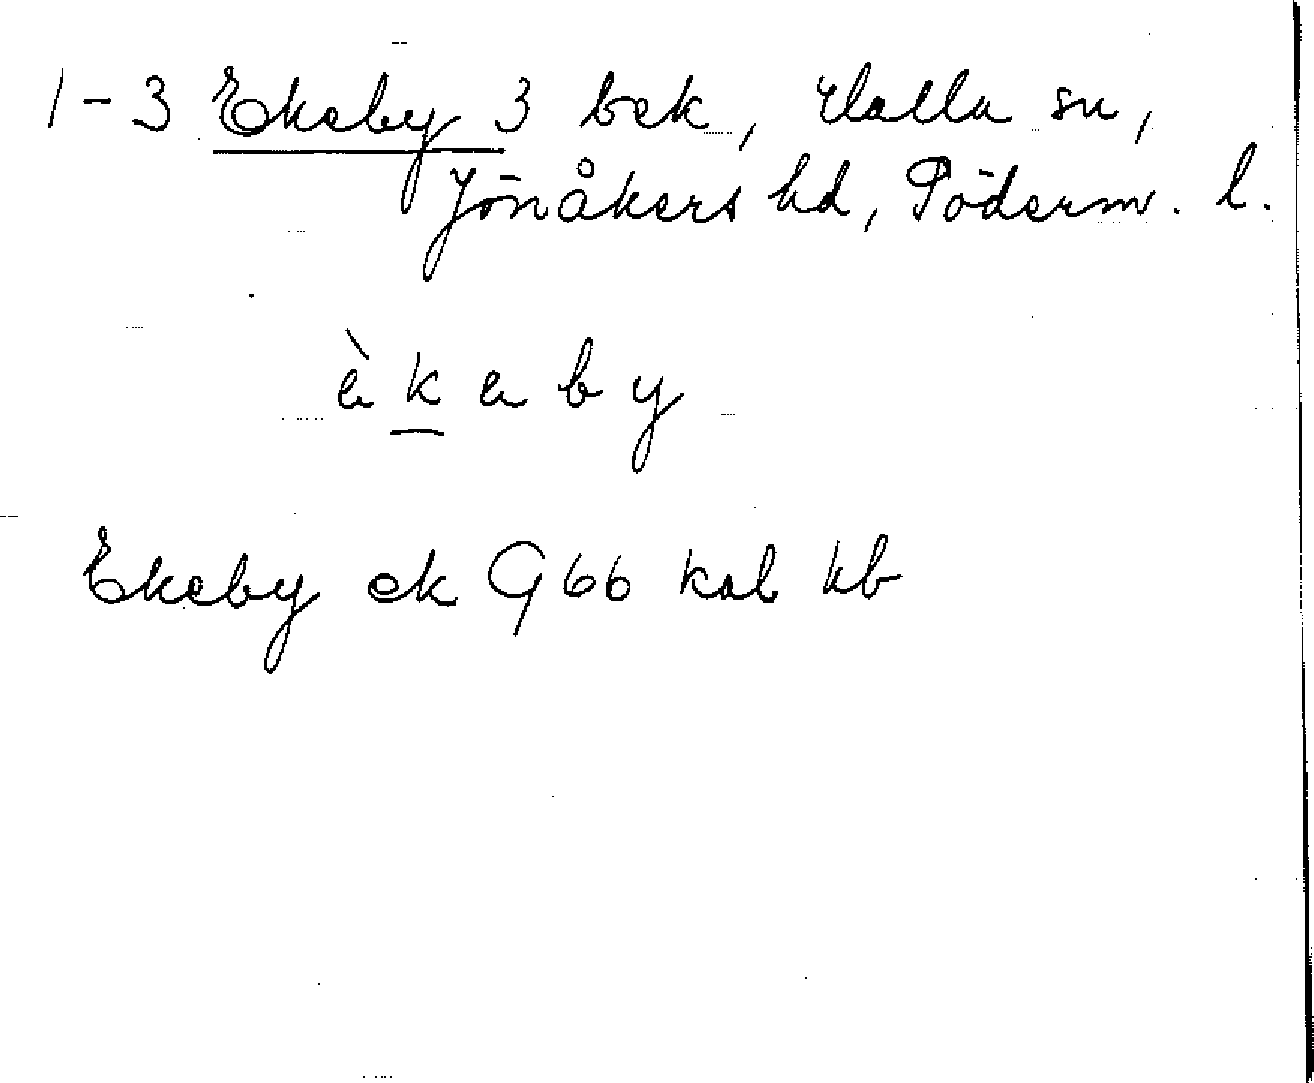 1-3 Ekeby 3 bek, Halla sn,
Jönåkers hd, Söderm. l.
è k e b y
Ekeby ek G 66 kal kb